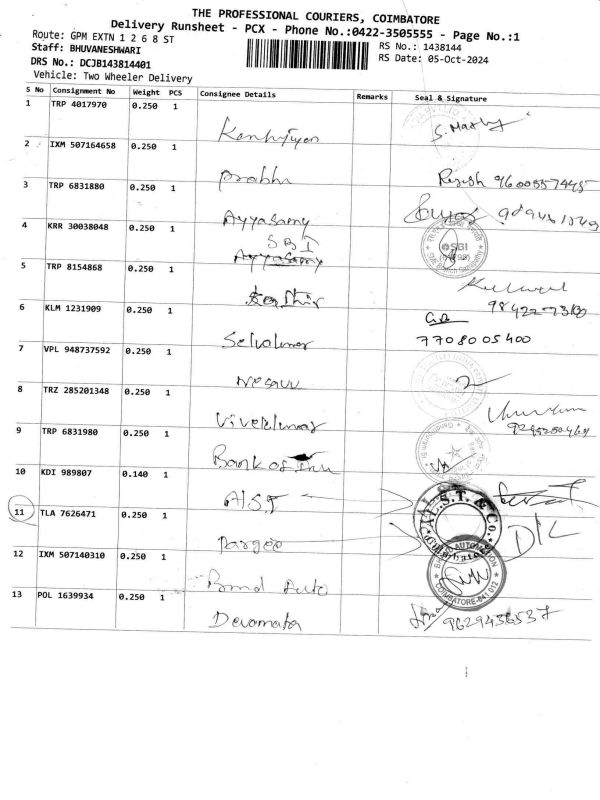 THE PROFESSIONAL COURIERS, COIMBATORE
Delivery Runsheet - PCX - Phone No.:0422-3505555 - Page No.:1
Route: GPM EXTN 1 2 6 8 ST
RS No.: 1438144
Staff: BHUVANESHWARI
RS Date: 05-Oct-2024
DRS No.: DCJB143814401
Vehicle: Two Wheeler Delivery
S No Consignment No Weight PCS Consignee Details Remarks Seal & Signature
1 TRP 4017970 0.250 1
2 IXM 507164658 0.250 1 Prabhu Rejesh 9600557445
3 TRP 6831880 0.250 1 Ayyasamy
4 KRR 30038048 0.250 1 SBI Ayyasamy SBI
5 TRP 8154868 0.250 1
6 KLM 1231909 0.250 1 Selvakumar 7708005400
7 VPL 948737592 0.250 1
8 TRZ 285201348 0.250 1 Vivekkumar
9 TRP 6831980 0.250 1 Bank of
10 KDI 989807 0.140 1
11 TLA 7626471 0.250 1
A.L.S.T. & Co.
12 IXM 507140310 0.250 1 Auto
COIMBATORE-641 012
13 POL 1639934 0.250 1 Devamatha 9629436537